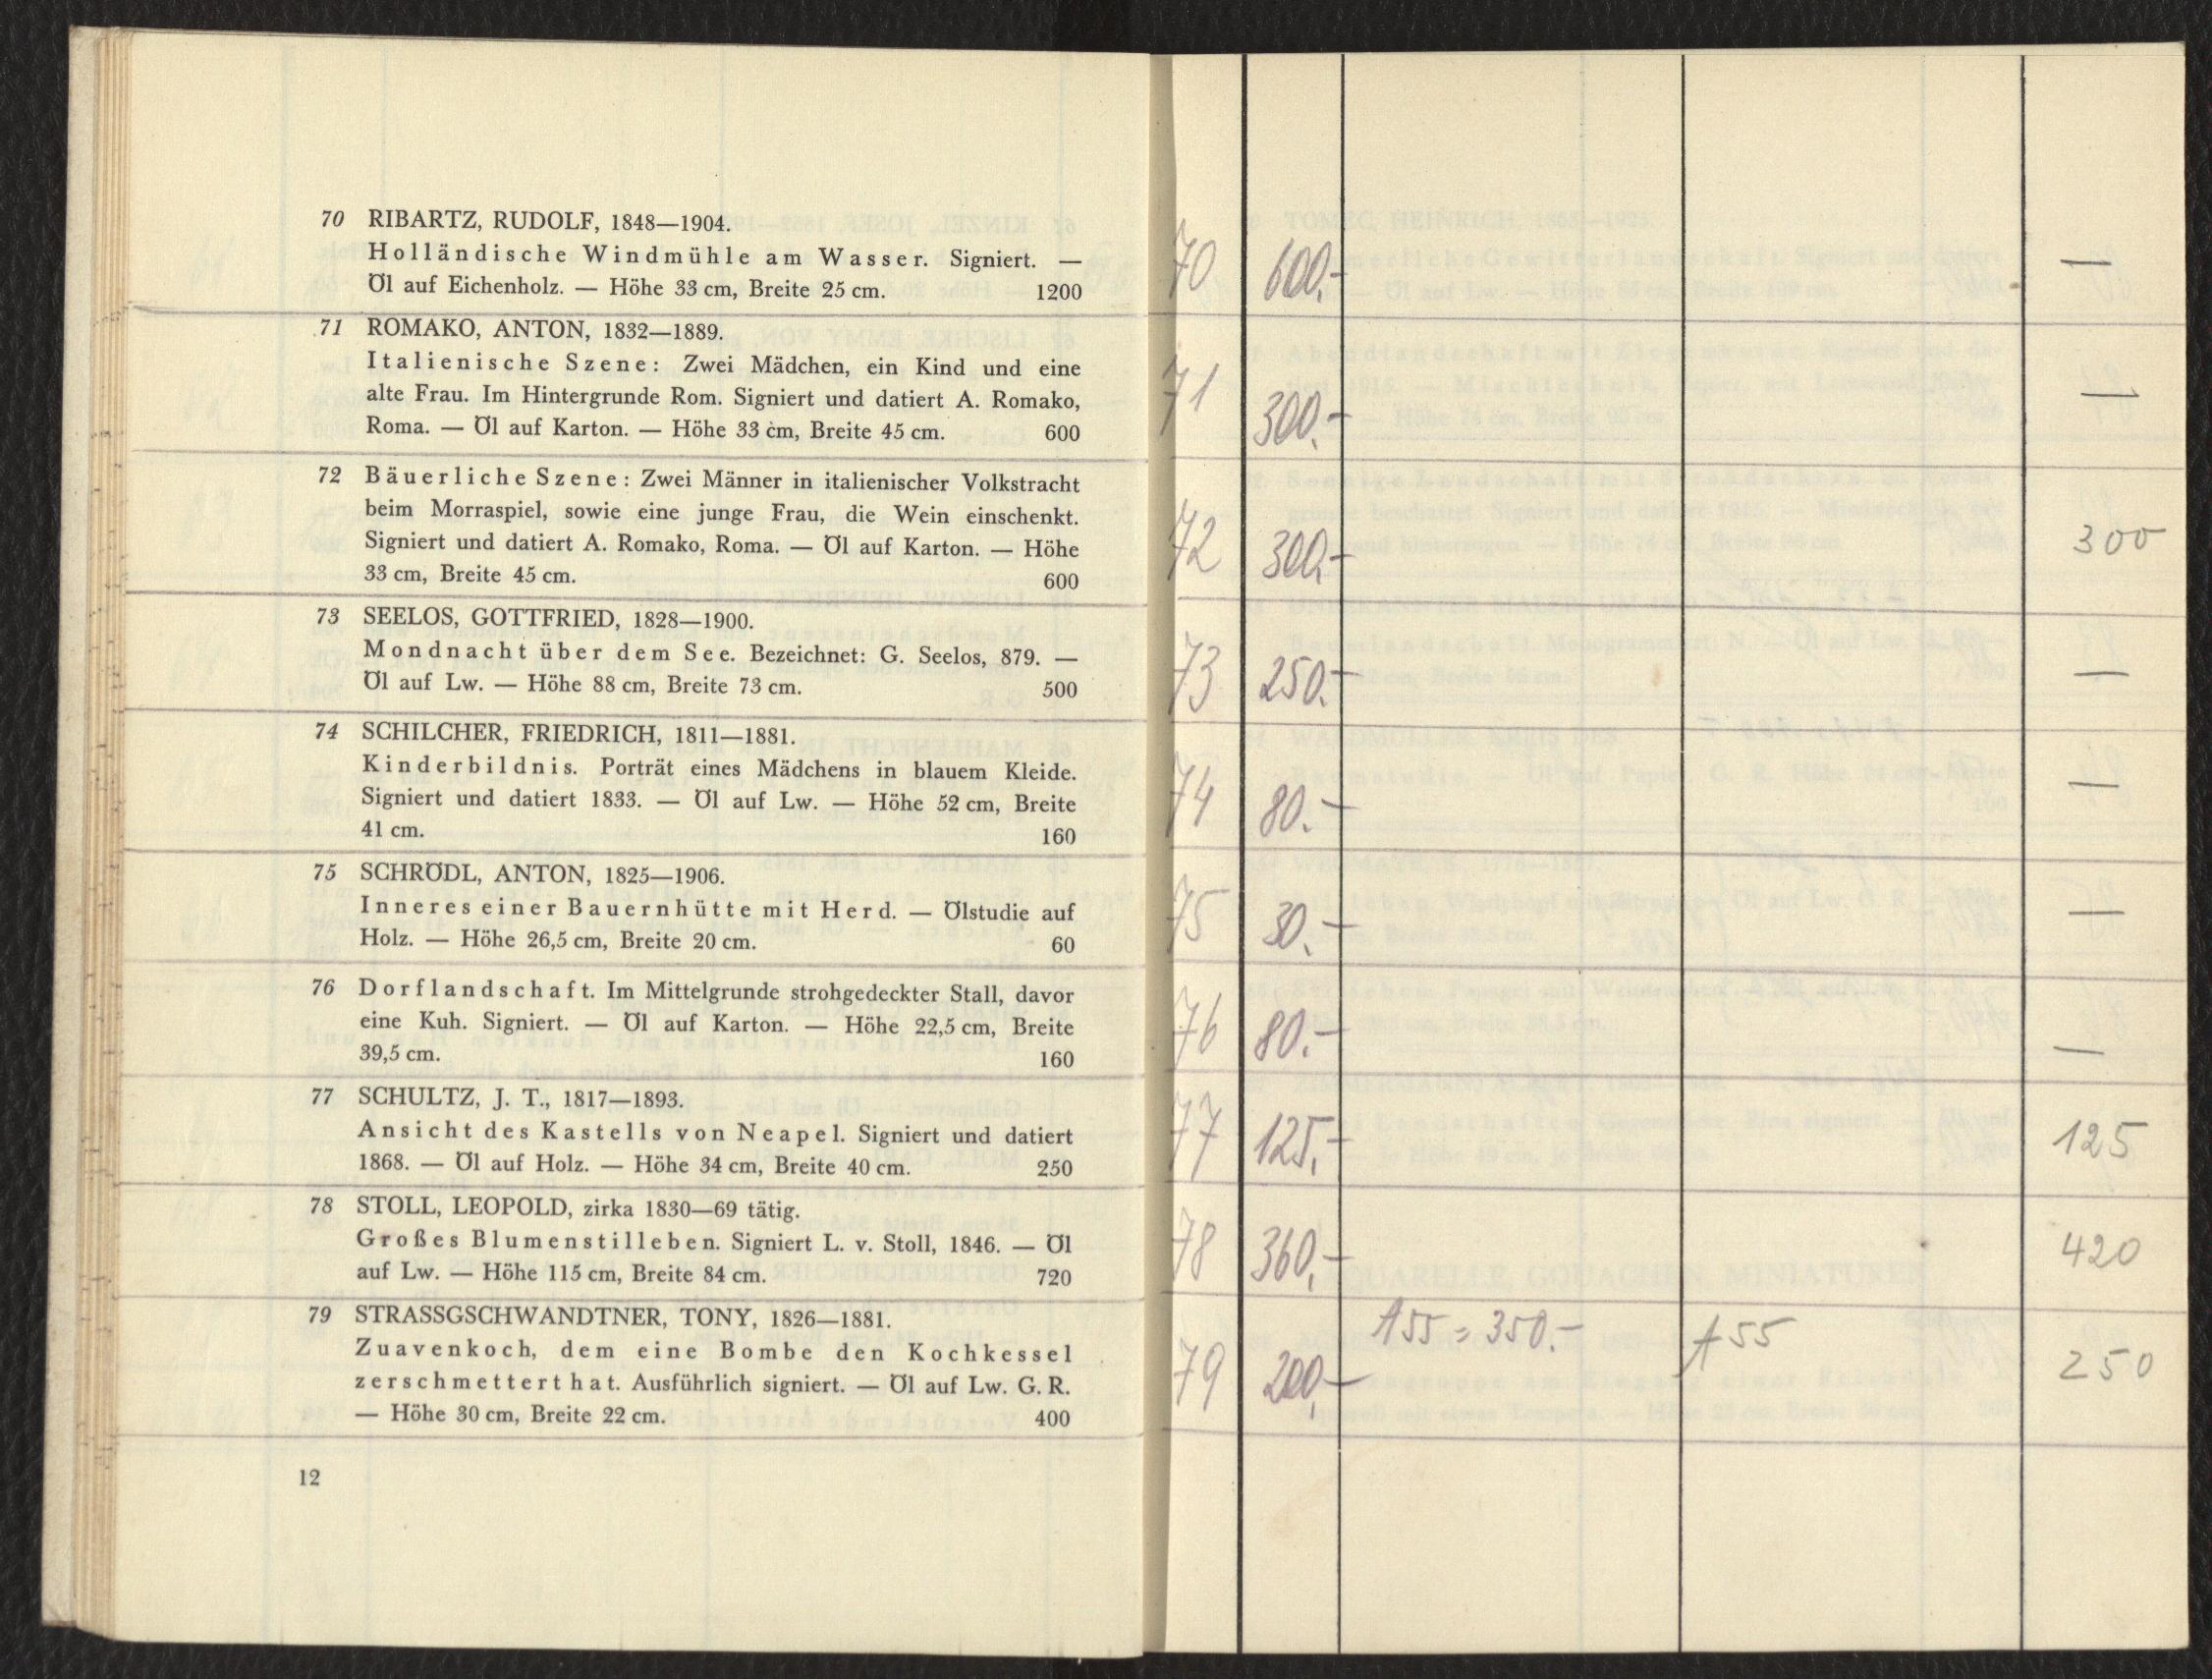 70 RIBARTZ, RUDOLF, 1848—1904.
Holländische Windmühle am Wasser. Signiert. —
Öl auf Eichenholz. — Höhe 33 cm, Breite 25 cm. 1200
71 ROMAKO, ANTON, 1832—1889.
Italienische Szene: Zwei Mädchen, ein Kind und eine
alte Frau. Im Hintergrunde Rom. Signiert und datiert A. Romako,
Roma. — Öl auf Karton. — Höhe 33 cm, Breite 45 cm. 600
72 Bäuerliche Szene: Zwei Männer in italienischer Volkstracht
beim Morraspiel, sowie eine junge Frau, die Wein einschenkt.
Signiert und datiert A. Romako, Roma. — Öl auf Karton. — Höhe
33 cm, Breite 45 cm. 600
73 SEELOS, GOTTFRIED, 1828—1900.
Mondnacht über dem See. Bezeichnet: G. Seelos, 879. —
Öl auf Lw. — Höhe 88 cm, Breite 73 cm. 500
74 SCHILCHER, FRIEDRICH, 1811—1881.
Kinderbildnis. Porträt eines Mädchens in blauem Kleide.
Signiert und datiert 1833. — Öl auf Lw. — Höhe 52 cm, Breite
41 cm. 160
75 SCHRÖDL, ANTON, 1825—1906.
Inneres einer Bauernhütte mit Herd. — Ölstudie auf
Holz. — Höhe 26,5 cm, Breite 20 cm. 60
76 Dorflandschaft. Im Mittelgrunde strohgedeckter Stall, davor
eine Kuh. Signiert. — Öl auf Karton. — Höhe 22,5 cm, Breite
39,5 cm. 160
77 SCHULTZ, J. T., 1817—1893.
Ansicht des Kastells von Neapel. Signiert und datiert
1868. — Öl auf Holz. — Höhe 34 cm, Breite 40 cm. 250
78 STOLL, LEOPOLD, zirka 1830—69 tätig.
Großes Blumenstilleben. Signiert L. v. Stoll, 1846. — Öl
auf Lw. — Höhe 115 cm, Breite 84 cm. 720
79 STRASSGSCHWANDTNER, TONY, 1826—1881.
Zuavenkoch, dem eine Bombe den Kochkessel
zerschmettert hat. Ausführlich signiert. — Öl auf Lw. G. R.
— Höhe 30 cm, Breite 22 cm. 400
12
70 600,- —
71 300.- —
72 300,- 300
73 250.- —
74 80.- —
75 30.- —
76 80.- —
77 125,- 125
78 360,- 420
79 200,- 155 = 350.- 155 250